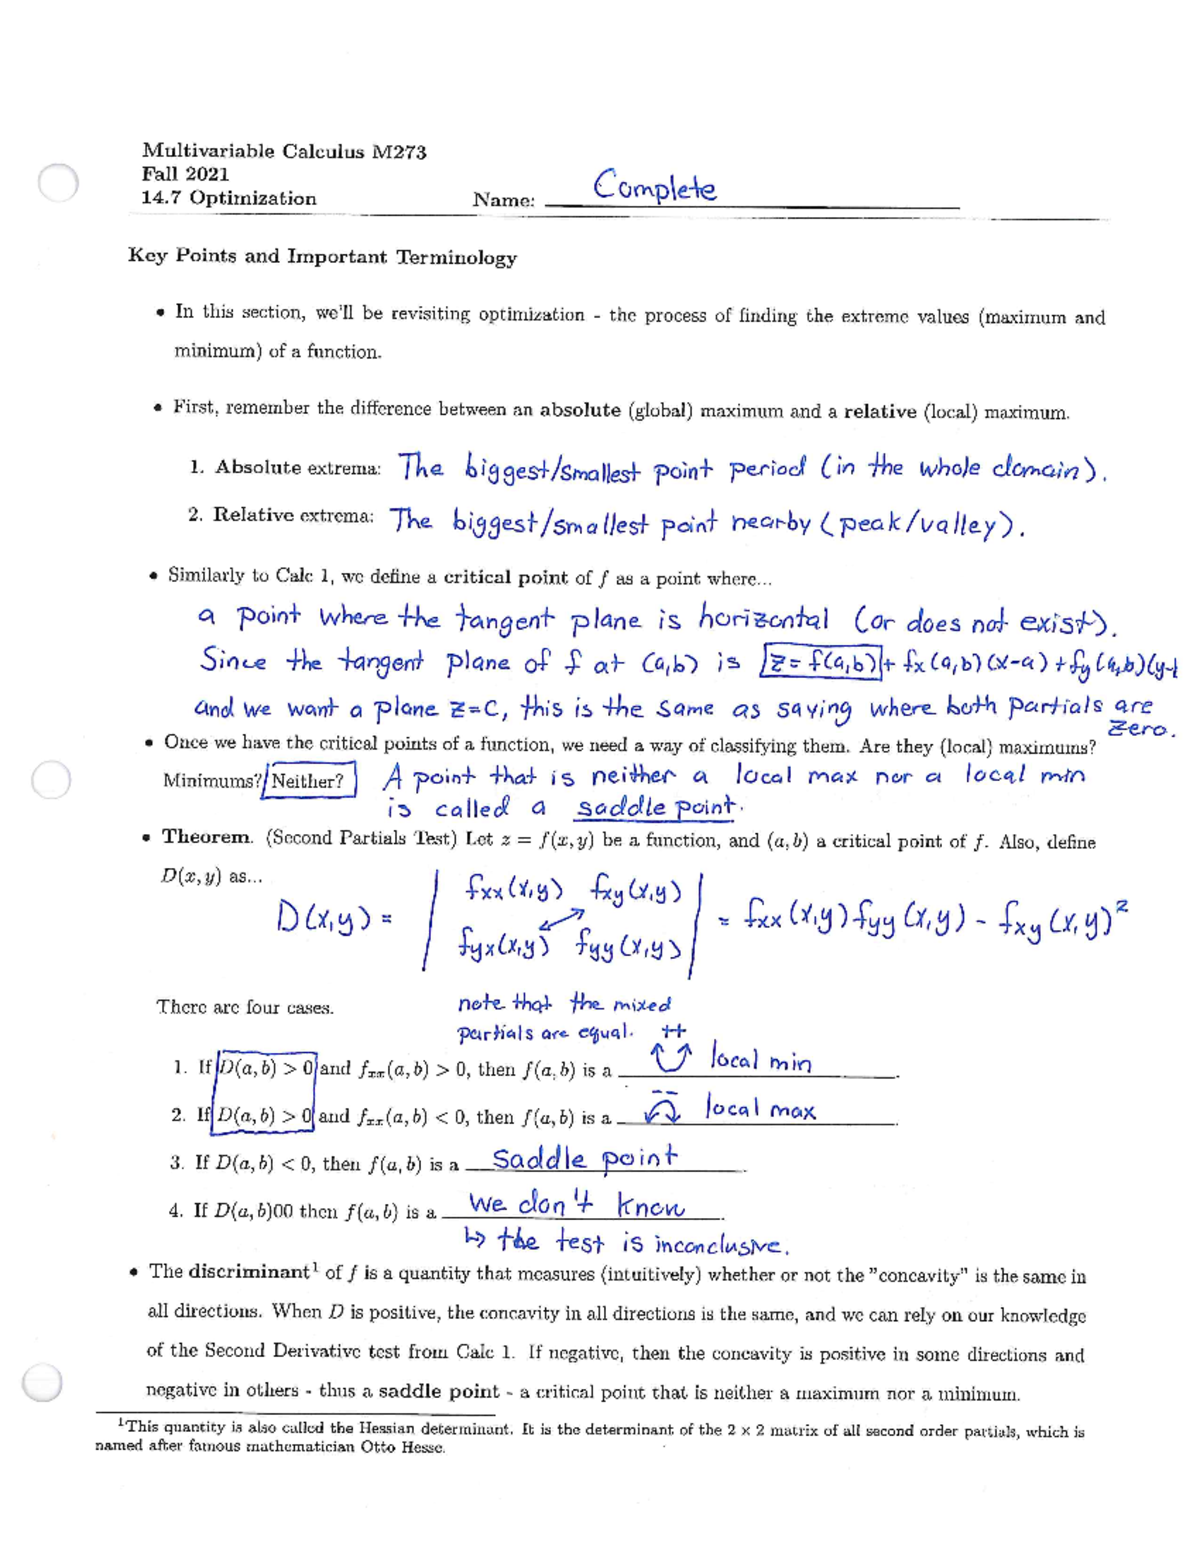 Multivariable Calculus M273
Fall 2021
14.7 Optimization Name: Complete
Key Points and Important Terminology
• In this section, we'll be revisiting optimization - the process of finding the extreme values (maximum and
minimum) of a function.
• First, remember the difference between an absolute (global) maximum and a relative (local) maximum.
1. Absolute extrema: The biggest/smallest point period (in the whole domain).
2. Relative extrema: The biggest/smallest point nearby (peak/valley).
• Similarly to Calc 1, we define a critical point of f as a point where...
a point where the tangent plane is horizontal (or does not exist).
Since the tangent plane of f at (a,b) is z = f(a,b) + fx(a,b)(x-a) + fy(a,b)(y-
and we want a plane z=c, this is the same as saying where both partials are
zero.
• Once we have the critical points of a function, we need a way of classifying them. Are they (local) maximums?
Minimums? Neither? A point that is neither a local max nor a local min
is called a saddle point.
• Theorem. (Second Partials Test) Let z = f(x, y) be a function, and (a, b) a critical point of f. Also, define
D(x, y) as...
D(x,y) = | fxx(x,y) fxy(x,y) fyx(x,y) fyy(x,y) | = fxx(x,y) fyy(x,y) - fxy(x,y)²
There are four cases. note that the mixed
partials are equal. ++
1. If D(a, b) > 0 and fxx(a, b) > 0, then f(a, b) is a local min.
--
2. If D(a, b) > 0 and fxx(a, b) < 0, then f(a, b) is a local max.
3. If D(a, b) < 0, then f(a, b) is a saddle point.
4. If D(a, b)00 then f(a, b) is a we don't know.
↳ the test is inconclusive.
• The discriminant¹ of f is a quantity that measures (intuitively) whether or not the "concavity" is the same in
all directions. When D is positive, the concavity in all directions is the same, and we can rely on our knowledge
of the Second Derivative test from Calc 1. If negative, then the concavity is positive in some directions and
negative in others - thus a saddle point - a critical point that is neither a maximum nor a minimum.
¹This quantity is also called the Hessian determinant. It is the determinant of the 2 × 2 matrix of all second order partials, which is
named after famous mathematician Otto Hesse.